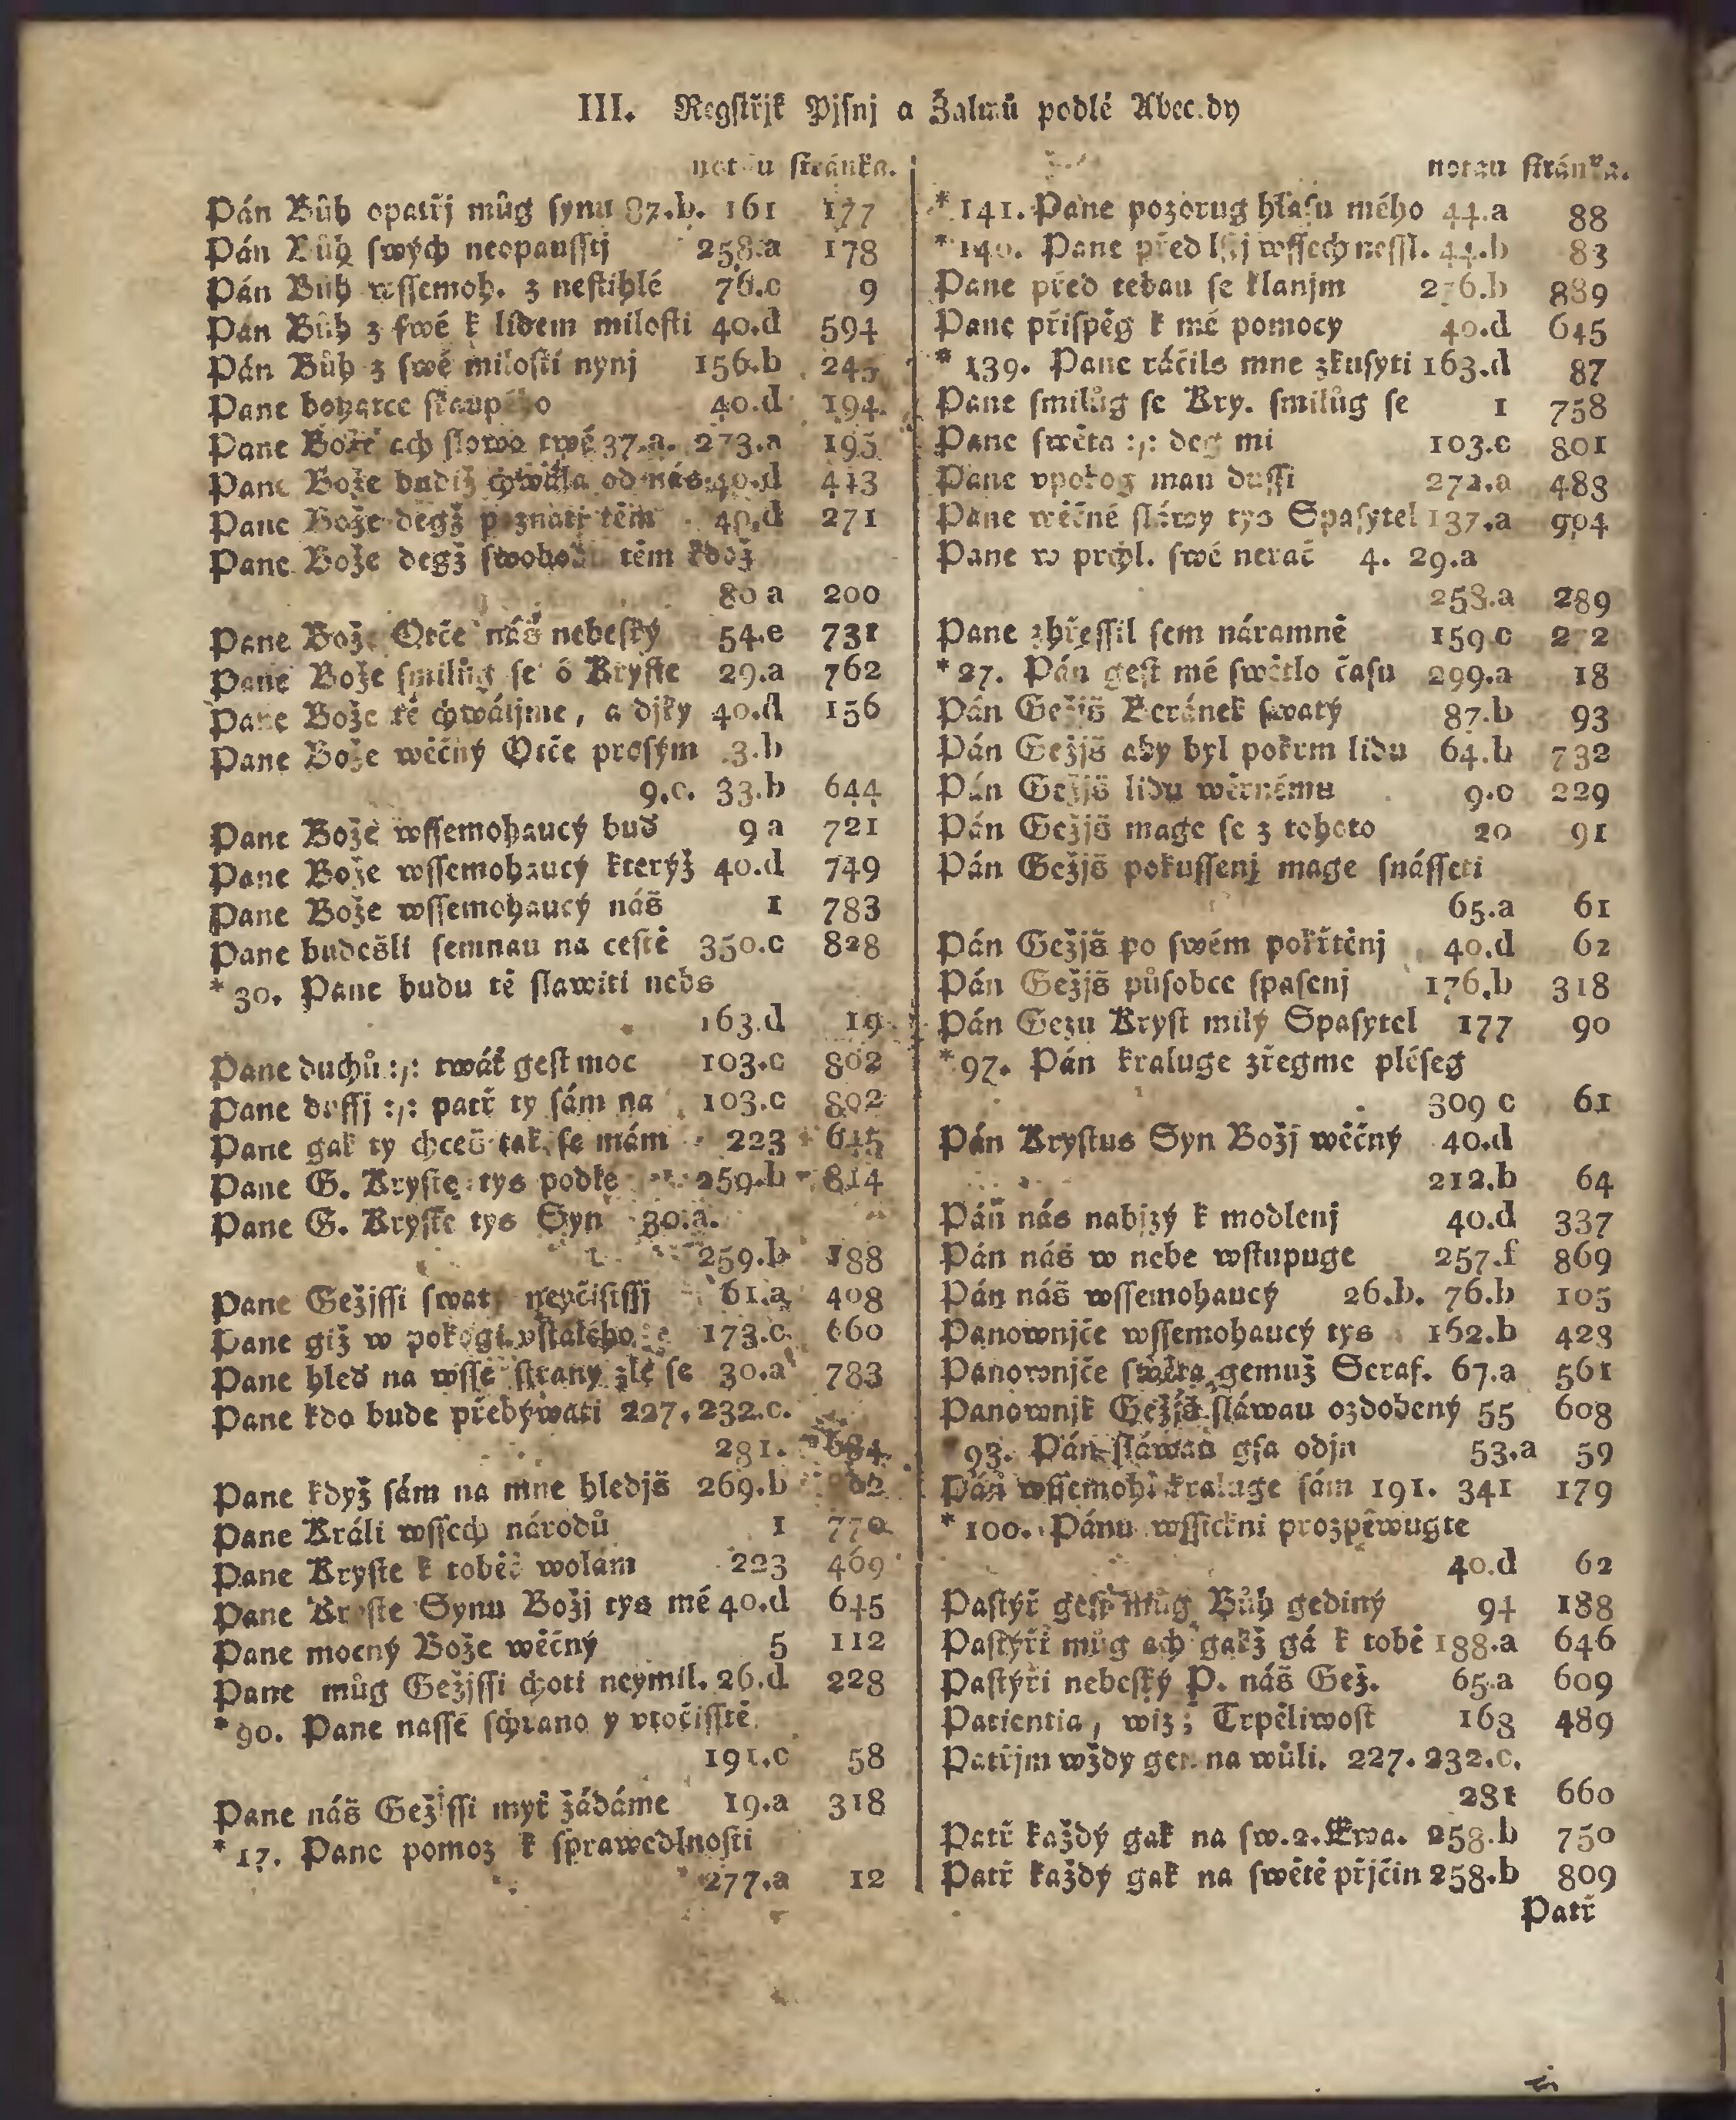 III. Regſtřjk Pjſnj a Žalmů podlé Abecedy
notau ſtránka.
Pán Bůh opatřj můg ſynu 87.b. 161 177
Pán Bůh ſwých neopauſſtj 258.a 178
Pán Bůh wſſemoh. z neſtihlé 76.c 9
Pán Bůh z ſwé k lidem miloſti 40.d 594
Pán Bůh z ſwé miloſti nynj 156.b 245
Pane bohatce ſkaupého 40.d 194
Pane Bože ach ſlowo twé 37.a. 273.a 195
Pane Bože budiž chwála od nás 40.d 443
Pane Bože degž poznati těm 40.d 271
Pane Bože degž ſwobodu těm kdož
80 a 200
Pane Bož. Otče náš nebeſký 54.e 731
Pane Bože ſmilůg ſe ó Kryſte 29.a 762
Pane Bože tě chwáljme, a djky 40.d 156
Pane Bože wěčný Otče proſým 3.b
9.c. 33.b 644
Pane Bože wſſemohaucý buď 9 a 721
Pane Bože wſſemohaucý kterýž 40.d 749
Pane Bože wſſemohaucý náš 1 783
Pane budešli ſemnau na ceſtě 350.c 828
* 30. Pane budu tě ſlawiti nebs
163.d 19
Pane duchů :,: twáť geſt moc 103.c 802
Pane duſſj :,: patř ty ſám na 103.c 802
Pane gak ty chceš tak ſe mám 223 645
Pane G. Kryſte tys podle 259.b 814
Pane G. Kryſte tys Syn 30.a.
259.b 188
Pane Gežjſſi ſwatý neyčiſtſſj 61.a 408
Pane giž w pokogi vſtalého 173.c. 660
Pane hleď na wſſe ſtrany zlé ſe 30.a 783
Pane kdo bude přebýwati 227. 232.c.
281. 684
Pane když ſám na mne hledjš 269.b
Pane Králi wſſech národů 1 770
Pane Kryſte k toběť wolám 223 469
Pane Kryſte Synu Božj tys mé 40.d 645
Pane mocný Bože wěčný 5 112
Pane můg Gežjſſi choti neymil. 26.d 228
* 90. Pane naſſe ſchrano y vtočiſſtě
191.c 58
Pane náš Gežjſſi myť žádáme 19.a 318
* 17. Pane pomoz k ſprawedlnoſti
277.a 12
notau ſtránka.
* 141. Pane pozorug hlaſu mého 44.a 88
* 140. Pane před lſtj wſſech neſſl. 44.b 83
Pane před tebau ſe klanjm 276.b 889
Pane přiſpěg k mé pomocy 40.d 645
* 139. Pane ráčils mne zkuſyti 163.d 87
Pane ſmilůg ſe Kry. ſmilůg ſe 1 758
Pane ſwěta :,: deg mi 103.c 801
Pane vpokog mau duſſi 272.a 483
Pane wěčné ſláwy tys Spaſytel 137.a 904
Pane w prchl. ſwé nerač 4. 29.a
258.a 289
Pane zhřeſſil ſem náramně 159 c 272
* 27. Pán geſt mé ſwětlo času 299.a 18
Pán Gežjš Beránek ſwatý 87.b 93
Pán Gežjš aby byl pokrm lidu 64.b 732
Pán Gežjš lidu wěrnému 9.c 229
Pán Gežjš mage ſe z tohoto 20 91
Pán Gežjš pokuſſenj mage ſnáſſeti
65.a 61
Pán Gežjš po ſwém pokřtěnj 40.d 62
Pán Gežjš půſobce ſpaſenj 176.b 318
Pán Gezu Kryſt milý Spaſytel 177 90
* 97. Pán kraluge zřegme pléſeg
309 c 61
Pán Kryſtus Syn Božj wěčný 40.d
212.b 64
Pán nás nabjzý k modlenj 40.d 337
Pán náš w nebe wſtupuge 257.f 869
Pán náš wſſemohaucý 26.b. 76.b 105
Panownjče wſſemohaucý tys 162.b 423
Panownjče ſwěta gemuž Seraf. 67.a 561
Panownjk Gežjš ſláwau ozdobený 55 608
* 93. Pán ſláwau gſa odjn 53.a 59
Pán wſſemoh. kraluge ſám 191. 341 179
* 100. Pánu wſſickni prozpěwugte
40.d 62
Paſtýř geſt můg Bůh gediný 94 188
Paſtýři můg ach gakž gá k tobě 188.a 646
Paſtýři nebeſký P. náš Gež. 65.a 609
Patientia, wiz; Trpěliwoſt 163 489
Patřjm wždy gen na wůli. 227. 232.c.
281 660
Patř každý gak na ſw. 2. Ewa. 258.b 750
Patř každý gak na ſwětě přjčin 258.b 809
Patř